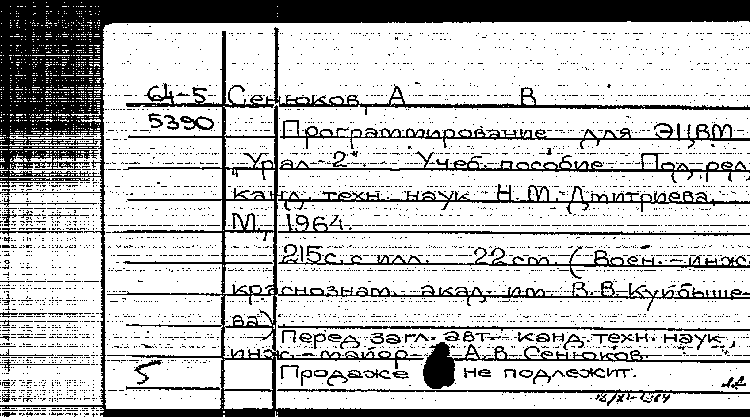 64-5 Сенюков, А В
5390 Программирование для ЭЦВМ
„Урал-2". Учеб. пособие. Под ред.
канд. техн. наук Н.М. Дмитриева.
М., 1964.
215с. с илл. 22см. (Воен.-инж.
краснознам. акад. им. В.В. Куйбыше-
ва)
Перед загл. авт. канд. техн. наук,
инж.-майор А.В. Сенюков.
5 Продаже не подлежит.